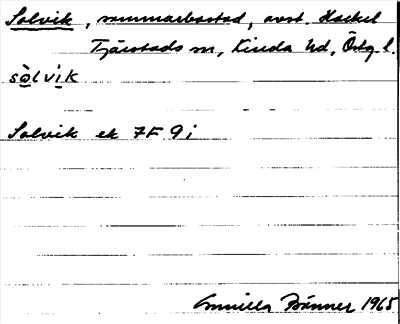 Solvik, sommarbostad, avst. Hackel
Tjärstads sn, Kinda hd, Östg. l.
sòlvik
Solvik ek 7F 9i
Gunilla Bränner 1965